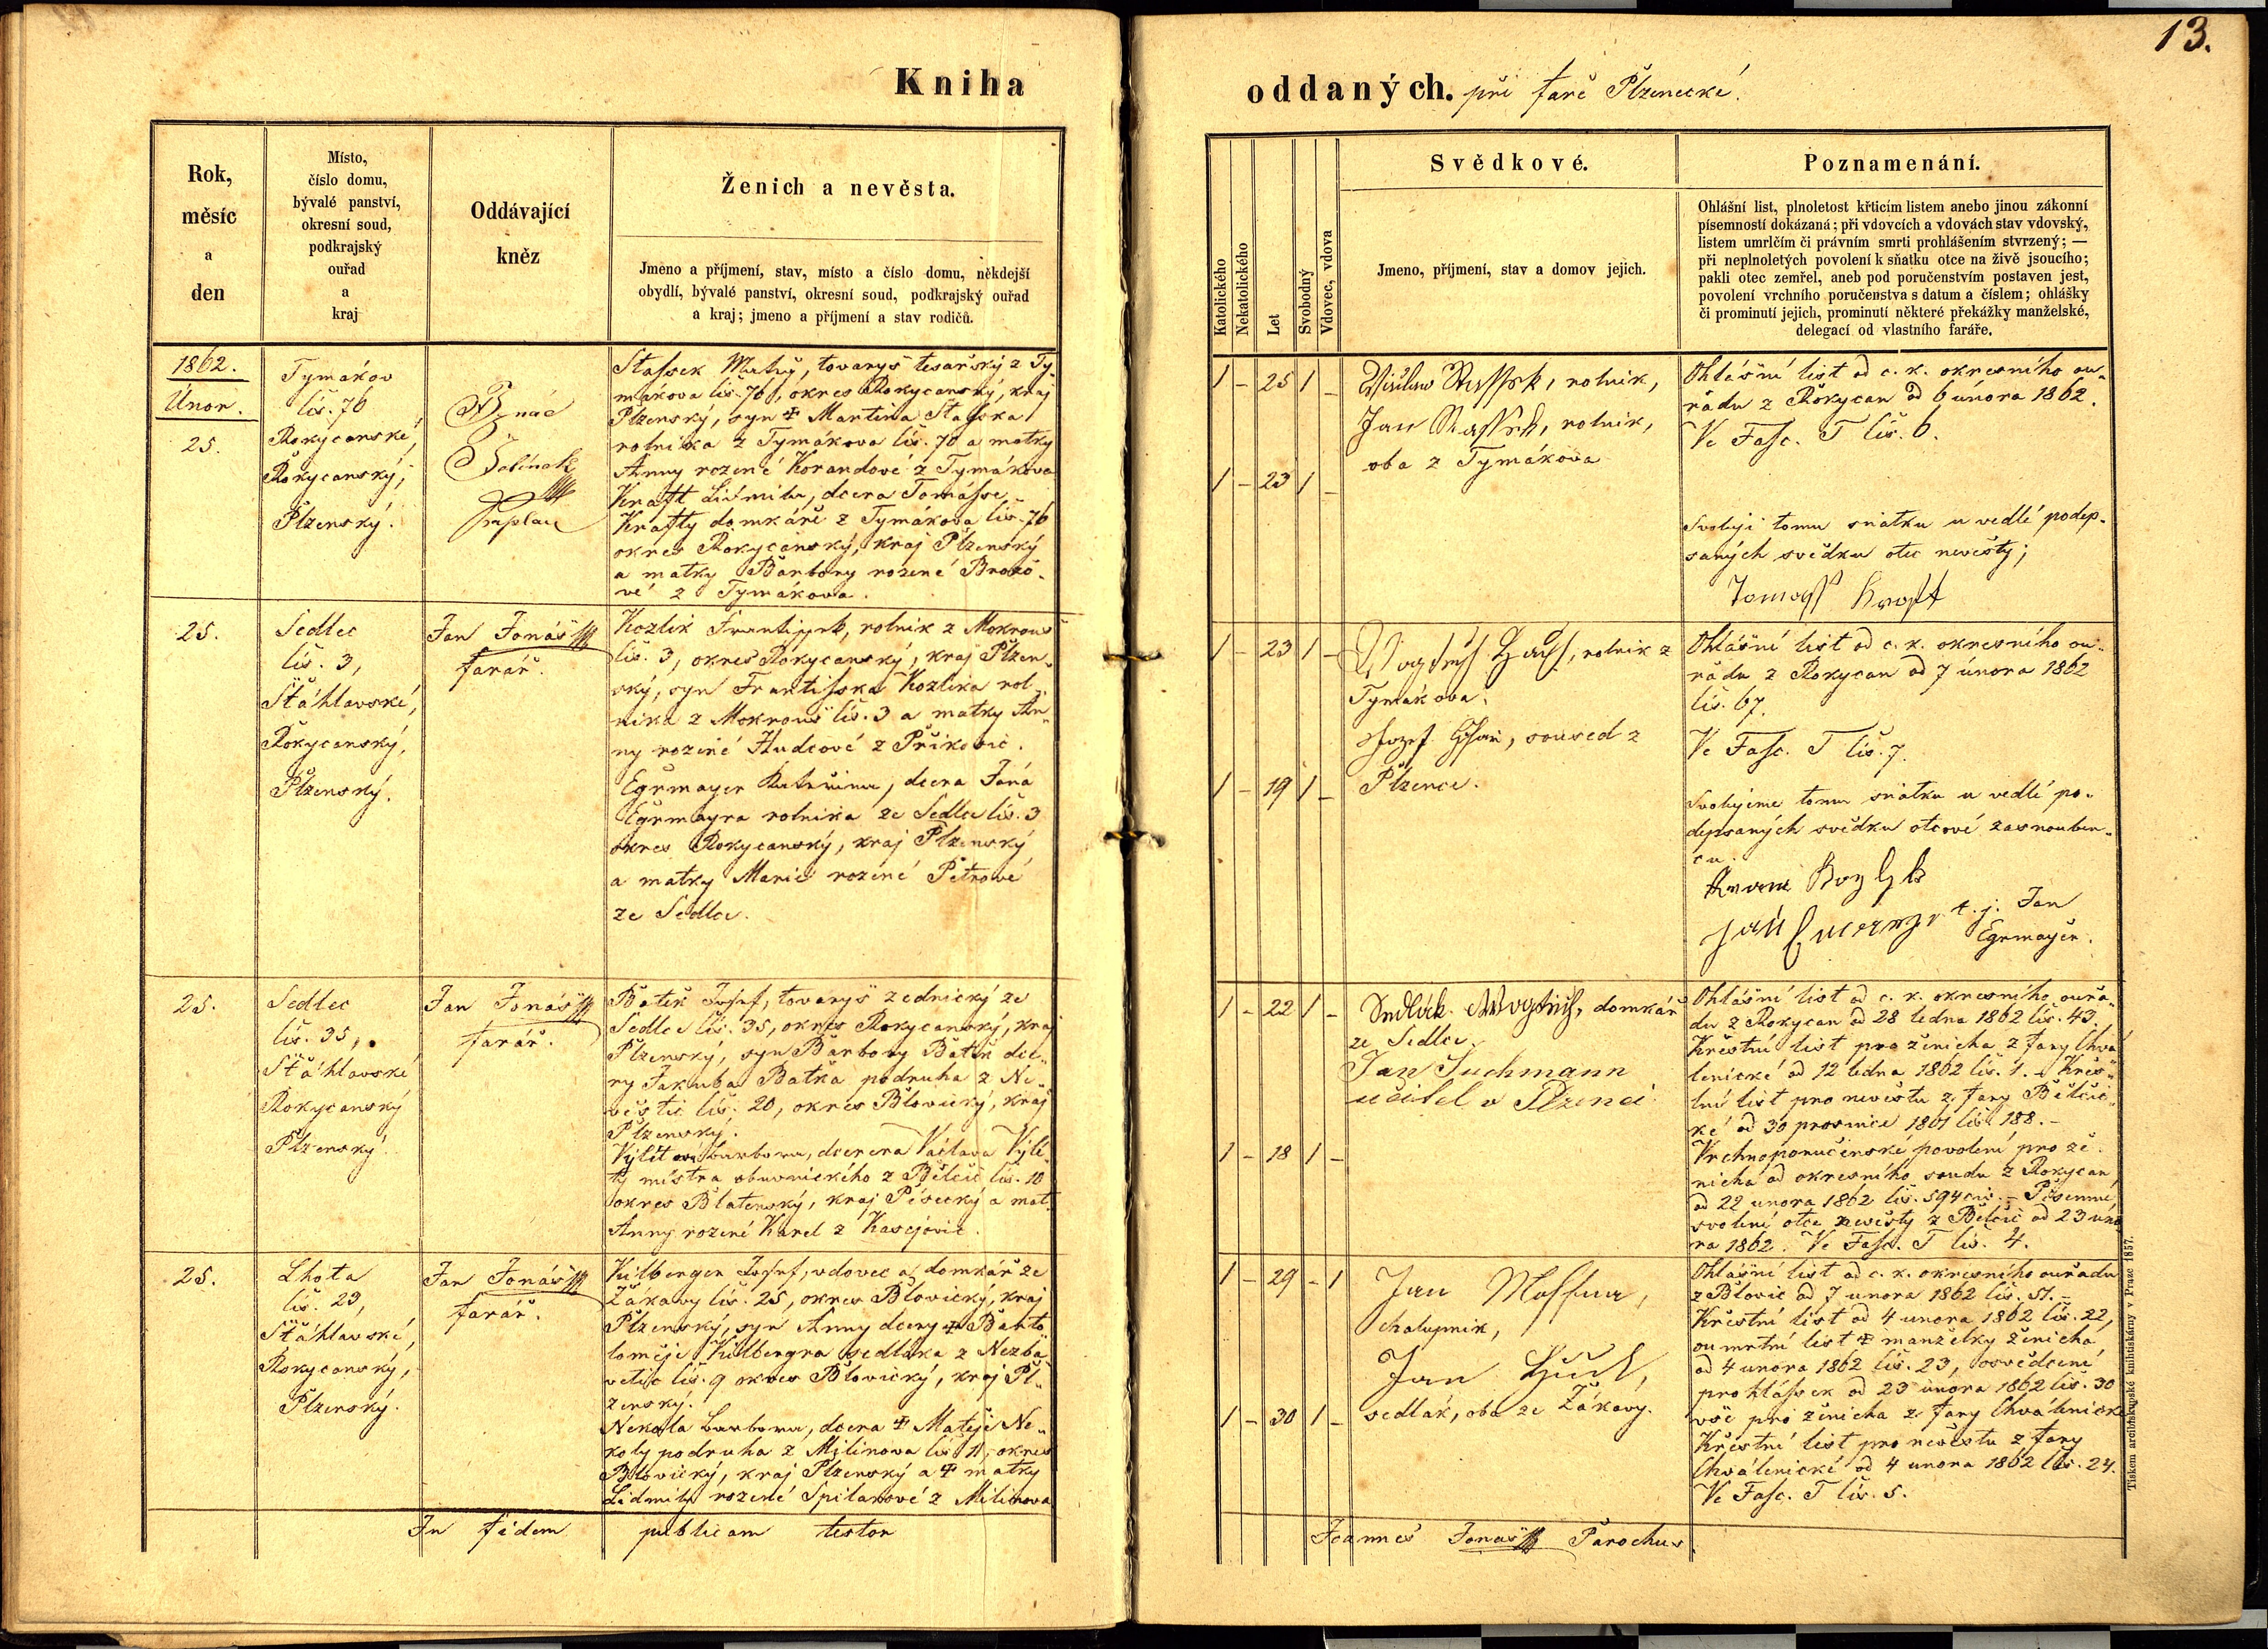 13.
Kniha
oddaných. při faře Plzenecké.
Rok,
měsíc
a
den
Místo,
číslo domu,
bývalé panství,
okresní soud,
podkrajský
ouřad
a
kraj
Oddávající
kněz
Ženich a nevěsta.
Jmeno a příjmení, stav, místo a číslo domu, někdejší
obydlí, bývalé panství, okresní soud, podkrajský ouřad
a kraj; jmeno a příjmení a stav rodičů.
Katolického
Nekatolického
Let
Svobodný
Vdovec, vdova
Svědkové.
Jmeno, příjmení, stav a domov jejich.
Poznamenání.
Ohlášní list, plnoletost křticím listem anebo jinou zákonní
písemností dokázaná; při vdovcích a vdovách stav vdovský,
listem umrlčím či právním smrti prohlášením stvrzený; —
při neplnoletých povolení k sňatku otce na živě jsoucího;
pakli otec zemřel, aneb pod poručenstvím postaven jest,
povolení vrchního poručenstva s datum a číslem; ohlášky
či prominutí jejich, prominutí některé překážky manželské,
delegací od vlastního faráře.
1862.
Únor.
25.
Tymákov
čís. 76
Rokycanské,
Rokycanský,
Plzenský.
Hynác
Kaplan
Stassek Matěj, tovaryš tesařský z Ty-
mákova čis. 70, okres Rokycanský, kraj
Plzenský, syn ☩ Martina Stasska
rolníka z Tymákova čís. 70 a matky
Anny rozené Korandové z Tymákova
Kraft Lidmila, dcera Tomásse
Krafty domkáře z Tymákova čís. 76
okres Rokycanský, kraj Plzenský
a matky Barbory rozené Brožo-
vé z Tymákova.
1 - 25 1 -
1 - 23 1 -
Stassek, rolník,
Jan Stassek, rolník,
oba z Tymákova
Ohlášní list od c. k. okresního ou-
řadu z Rokycan od 6 února 1862.
Ve Fasc. T čis. 6.
Svoluji tomu sňatku u vedlé podep-
saných svědku otec nevěsty;
Tomass Kraft
25.
Sedlec
čis. 3,
Šťáhlavské,
Rokycanský,
Plzenský.
Jan Jonáš
farář.
Kozlik Frantissek, rolník z Mokrouš
čis. 3, okres Rokycanský, kraj Plzen-
ský, syn Frantisska Kozlika rol-
nika z Mokrouš čis. 3 a matky An-
ny rozené Hudcové z Přikosic.
Egrmayer Kateřina, dcera Jana
Egrmayra rolnika ze Sedlce čis. 3
okres Rokycanský, kraj Plzenský
a matky Marie rozené Petrové
ze Sedlce.
1 - 23 1 -
1 - 19 1 -
rolnik z
Tymákova.
Jozef soused z
Plzence.
Ohlášní list od c. k. okresního ou-
řadu z Rokycan od 7 února 1862
čis. 67.
Ve Fasc. T čis. 7.
Svolujeme tomu sňatku u vedlé po-
depsaných svědku otcové zasnouben-
cu.
Jan t. j. Jan
Egrmayer.
25.
Sedlec
čis. 35,
Šťáhlavské
Rokycanský
Plzenský.
Jan Jonáš
farář.
Batěk Josef, tovaryš zednický ze
Sedlce čis. 35, okres Rokycanský, kraj
Plzenský, syn Barbory Batěk dce-
ry Jakuba Batka podruha z Ne-
věstic čís. 20, okres Blovický, kraj
Plzenský.
Výlet Barbora, dcerera Václava Výle-
ty mistra obuvnického z Bělčic čis. 10
okres Blatenský, kraj Písecký a mat.
Anny rozené Karel z Kasejovic.
1 - 22 1 -
1 - 18 1 -
Sedlák domkář
ze Sedlce.
Jan Suchmann
učitel v Plzenci.
Ohlášní list od c. k. okresního ouřa-
du z Rokycan od 28 ledna 1862 čis. 43.
Křestní list pro ženicha z fary Chvá-
lenické od 12 ledna 1862 čis. 1. - Křes-
tní list pro nevěstu z fary Bělčic-
ké od 30 prosince 1861 čis 188. -
Vrchnoporučenské povolení pro že-
nicha od okresního soudu z Rokycan
od 22 unora 1862 čis. 594 civ. - Písemné
svolení otce nevěsty z Bělčic od 23 úno
ra 1862. Ve Fasc. T čis. 4.
25.
Lhota
čis. 23,
Šťáhlavské,
Rokycanský,
Plzenský.
Jan Jonáš
farář.
Kilberger Josef, vdovec a domkář ze
Žákavy čis. 25, okres Blovický, kraj
Plzenský, syn Anny dcery ☩ Barto
loměje Kilbergra sedláka z Nezba
vetic čis. 9 okres Blovický, kraj Pl-
zenský.
Nekola Barbora, dcera ☩ Matěje Ne-
koly podruha z Milinova čis 11, okres
Blovický, kraj Plzenský a ☩ matky
Lidmily rozené Spilarové z Milinova
1 - 29 - 1
1 - 30 1 -
Jan
chalupnik,
Jan
sedlák, oba ze Žákavy.
Ohlášní list od c. k. okresního ouřadu
z Blovic od 7 unora 1862 čis. 51. -
Křestní list od 4 unora 1862 čis. 22,
oumrtní list ☩ manželky ženicha
od 4 unora 1862 čis. 23, osvědcení
prohlássek od 23 unora 1862 čis. 30
vše pro ženicha z fary Chválenické
Křestní list pro nevěstu z fary
Chválenické od 4 unora 1862 čis. 24.
Ve Fasc. T čis. 5.
In fidem publicam testor
Joannes Jonáš Parochus.
Tiskem arcibiskupské knihtiskárny v Praze 1857.